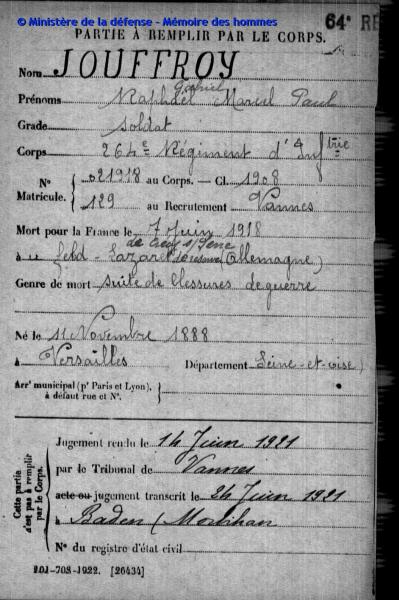 © Ministère de la défense - Mémoire des hommes
64e RE
PARTIE À REMPLIR PAR LE CORPS.
Nom JOUFFROY
Prénoms Raphaël Gabriel Marcel Paul
Grade Soldat
Corps 264e Régiment d'Infrie
N° 021918 au Corps. — Cl. 1908
Matricule. 129 au Recrutement Vannes
Mort pour la France le 7 Juin 1918
à Feld-Lazaret (Allemagne)
Genre de mort suite de blessures de guerre
Né le 11 Novembre 1888
à Versailles Département Seine-et-Oise)
Arr^t municipal (p^r Paris et Lyon),
à défaut rue et N°.
Cette partie n'est pas à remplir par le Corps.
Jugement rendu le 14 Juin 1921
par le Tribunal de Vannes
acte ou jugement transcrit le 24 Juin 1921
à Baden (Morbihan
N° du registre d'état civil
101-708-1922. [26434]